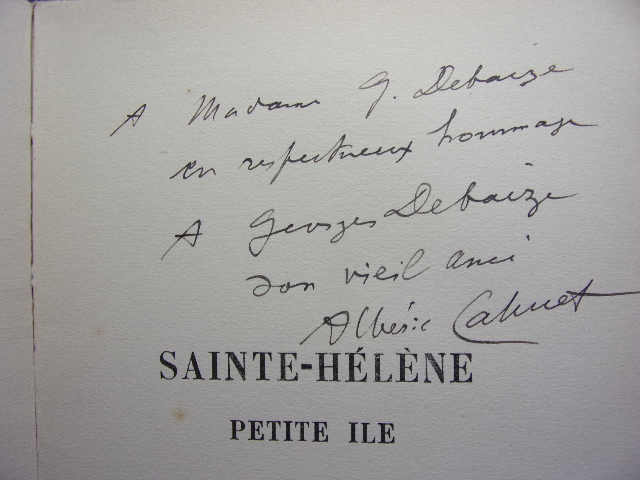 A Madame G. Debaize
en respectueux hommage
A Georges Debaize
son vieil ami
Albéric Cahuet
SAINTE-HÉLÈNE
PETITE ILE